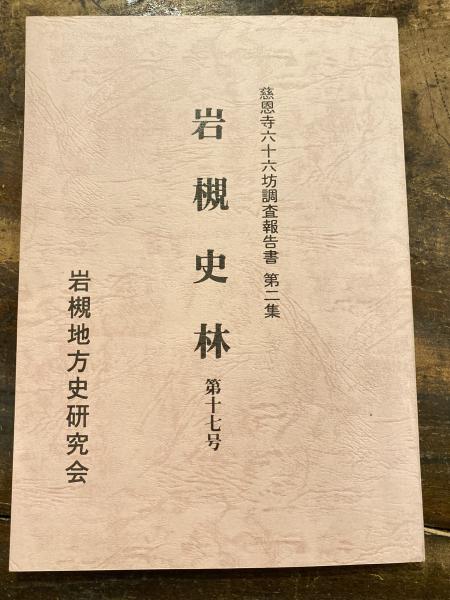 慈恩寺六十六坊調査報告書 第二集
岩槻史林 第十七号
岩槻地方史研究会